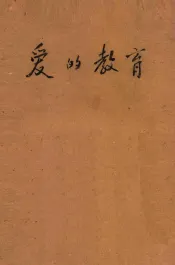 爱的教育